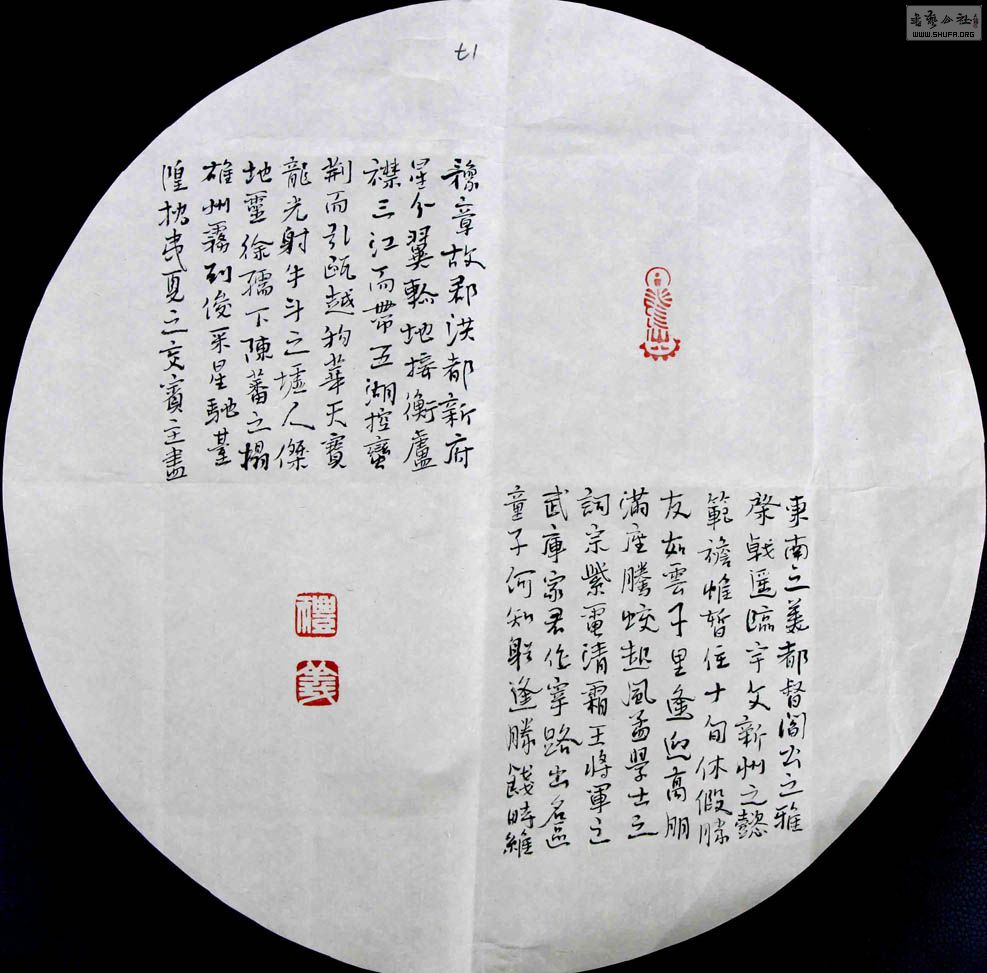 豫章故郡洪都新府
星分翼軫地接衡廬
襟三江而帶五湖控蠻
荆而引甌越物華天寶
龍光射牛斗之墟人傑
地靈徐孺下陳蕃之榻
雄州霧列俊采星馳臺
隍枕夷夏之交賓主盡
東南之美都督閻公之雅
棨戟遥臨宇文新州之懿
範襜帷暫住十旬休假勝
友如雲千里逢迎高朋
滿座騰蛟起風孟學士之
詞宗紫電清霜王將軍之
武庫家君作宰路出名區
童子何知躬逢勝餞時維
禮
義
書藝公社
WWW.SHUFA.ORG